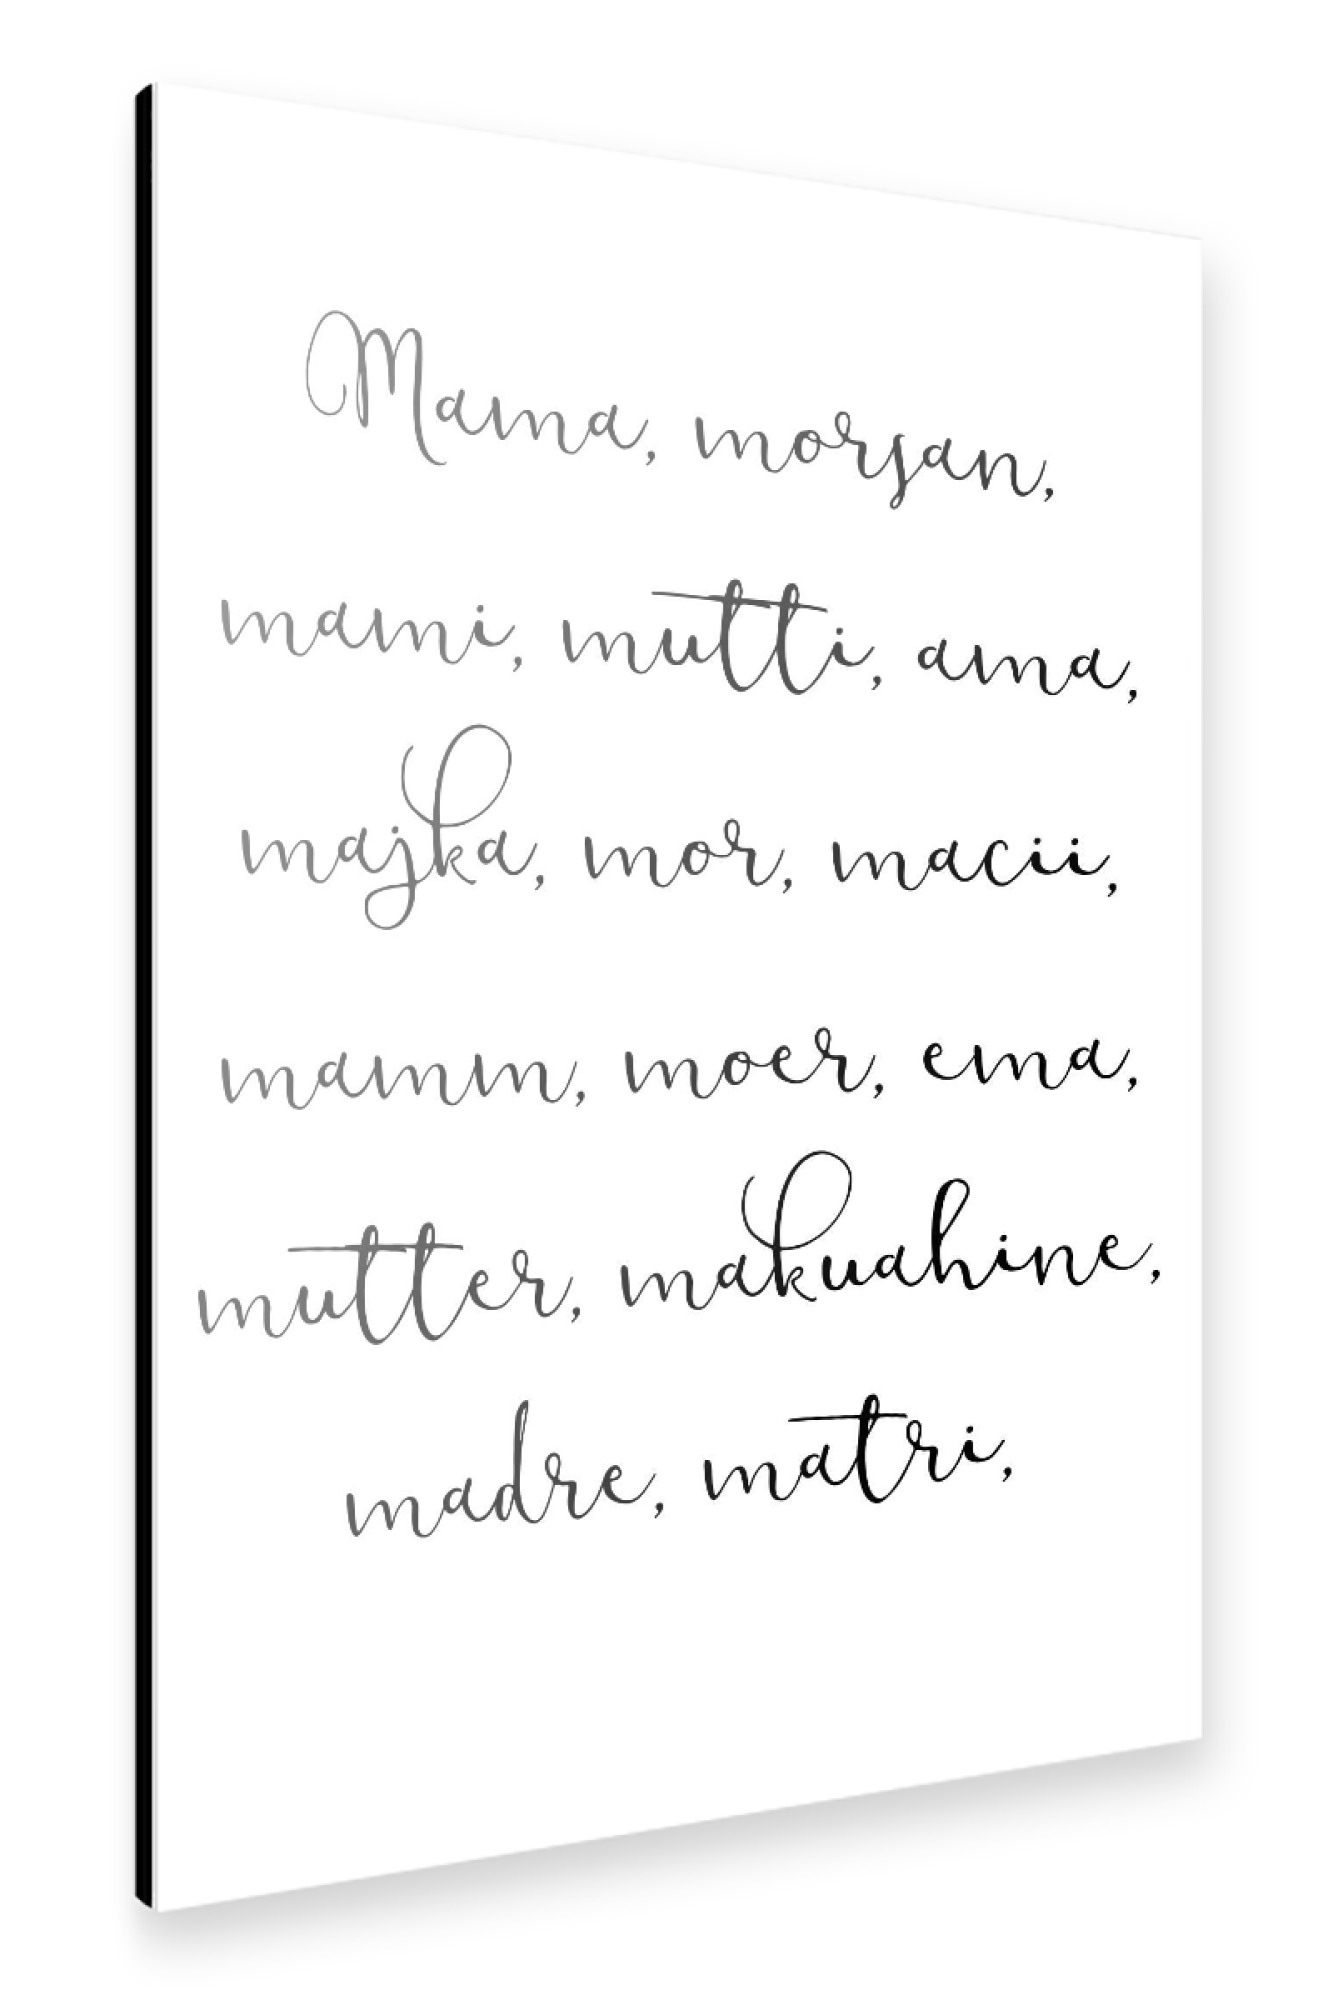 Mama, morsan,
mami, mutti, ama,
majka, mor, macii,
mamm, moer, ema,
mutter, makuahine,
madre, matri,